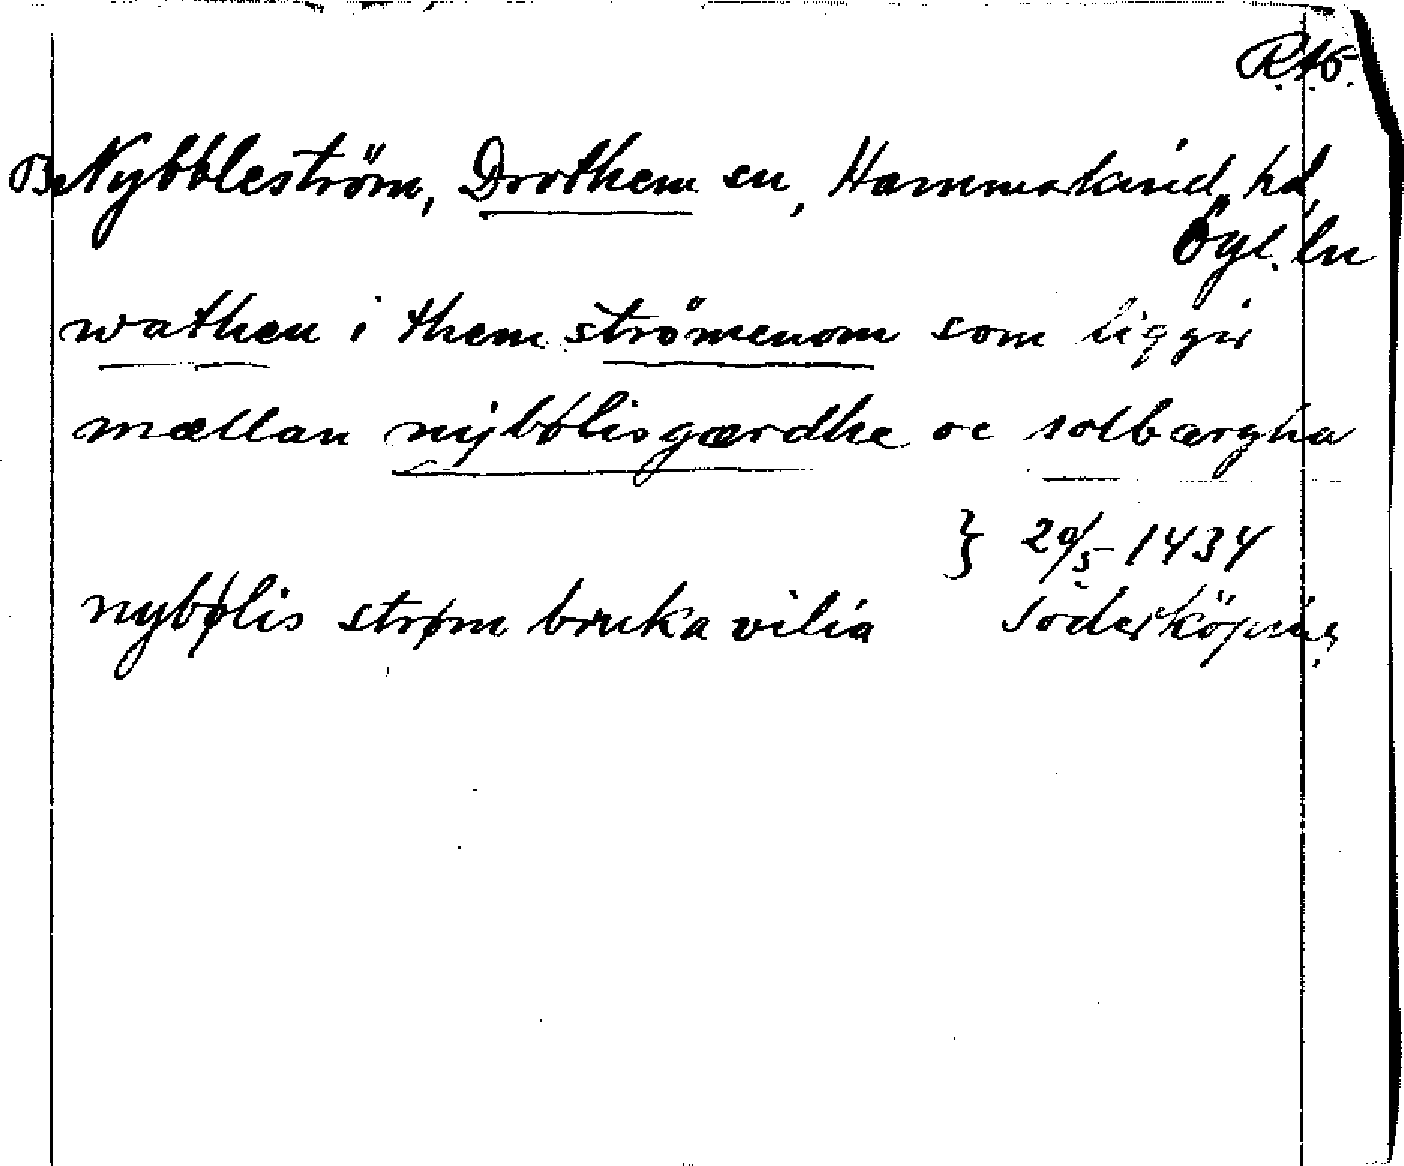 R.A.Ö.
B. Nybbleström, Drothem sn, Hammarkind hd,
Ögl. ln
wathen i them strömenom som liggir
mællan nybølisgærdhe oc solbærgha
} 20/5 1434
nybølis strøm bruka vilia Söderköping